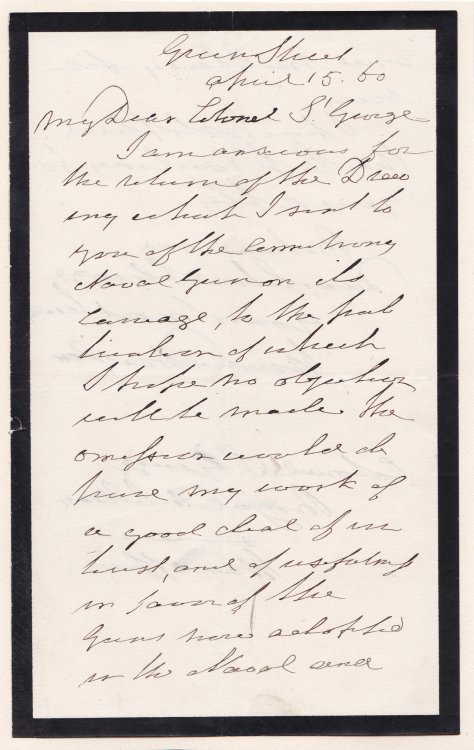 Green Street
April 15. 60
My Dear Colonel St George
I am anxious for
the return of the Draw
ing which I sent to
you of the Armstrong
Naval Gun on its
carriage, to the pub
lication of which
I hope no objection
will be made. The
omission would de
prive my work of
a good deal of in
terest, and of usefulness
in favor of the
Guns now adopted
in the Naval and